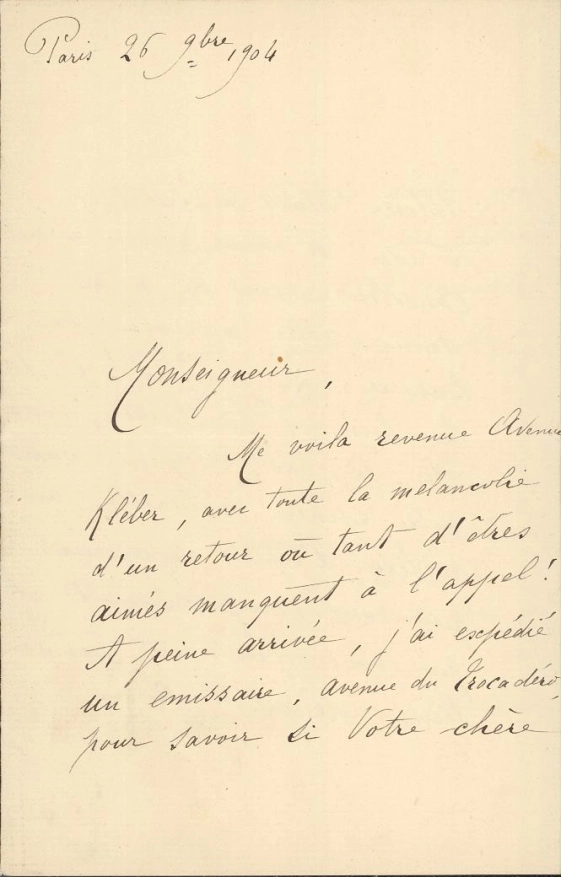 Paris 26 9bre 1904
Monseigneur,
Me voila revenue Avenue
Kléber, avec toute la melancolie
d'un retour où tant d'êtres
aimés manquent à l'appel!
A peine arrivée, j'ai expédié
un emissaire, avenue du Trocadéro,
pour savoir si Votre chère